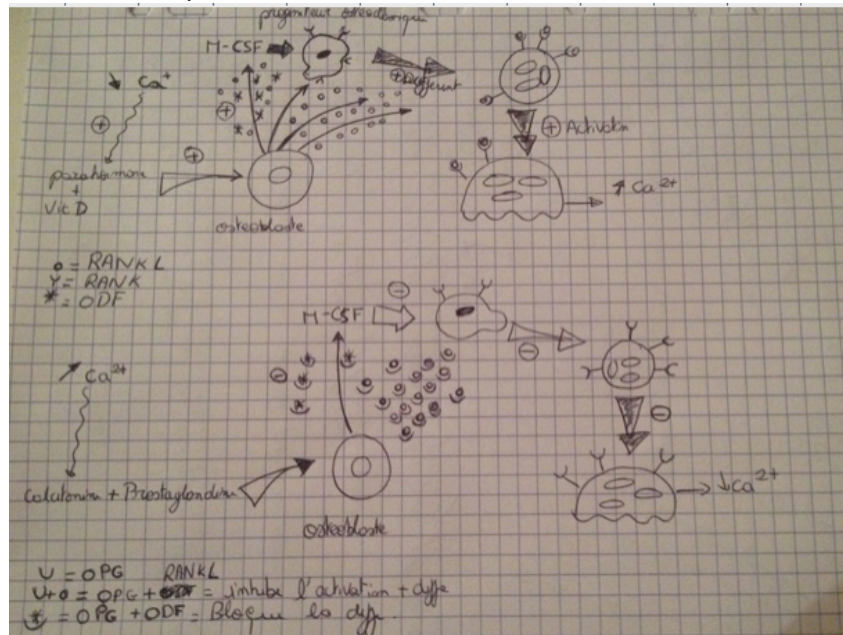 progéniteur ostéoclasique
M-CSF
↘ Ca⁺
⊕
⊕
⊕ Different
⊕
⊕ Activation
parathormone
+
Vit D
ostéoblaste
↑ Ca²⁺
o = RANKL
Y = RANK
* = ODF
⊖
M-CSF
⊖
↗ Ca²⁺
⊖
⊖
Calcitonine + Prostaglandine
↓ Ca²⁺
ostéoblaste
U = OPG
RANKL
U+o = OPG + = inhibe l'activation + diffe
* = OPG + ODF = Bloque la diff.